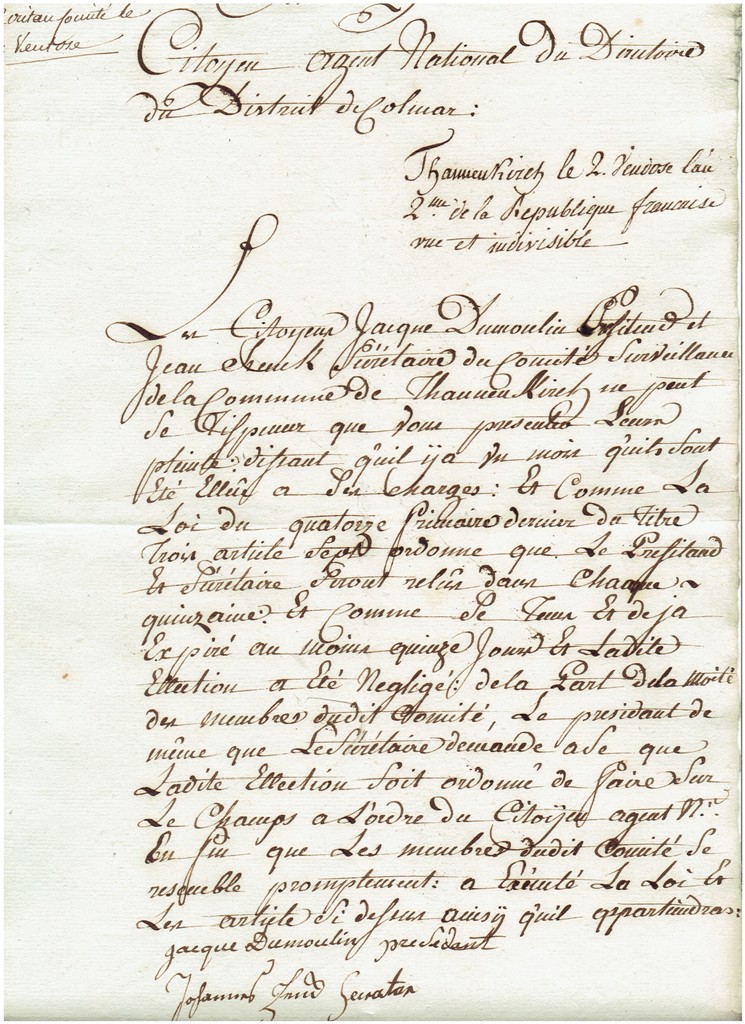 comité le
Ventose
Citoyen agent National du Directoire
du District de Colmar :
Thannenkirch le 2. Vendose l'an
2.me de la Republique francaise
vne et indivisible
Les Citoyens Jacque Dumoulin Presitend et
Jean Sécrétaire du Comité Surveillance
de la Commune de Thannenkirch ne peut
Se Dispencer que vous presenter Leurs
pleinte : dissant qu'il ij a vn mois qu'ils sont
Eté Ellûs a Des charges : Et Comme La
Loi du quatorze frimaire dernier du Titre
Trois article Sept ordonne que Le Presitand
Et Sécrétaire Seront relûs dans Chaque
quinzaine. Et Comme Se Tems Et deja
Expiré au moins quinze Jours Et Ladite
Ellection a Eté Negligé : de la Part de la moité
des membres dudit Comité, Le presidant de
même que Le Sécrétaire demande a Se que
Ladite Ellection Soit ordonné de faire Sur
Le Champs a L'ordre du Citoyen agent N.al
En fin que Les membres dudit Comité Se
resemble promptement : a Exécuté La Loi Et
Les article Si desus ainsÿ qu'il appartiendras :
Jacque Dumoulin president
Johannes Secretar